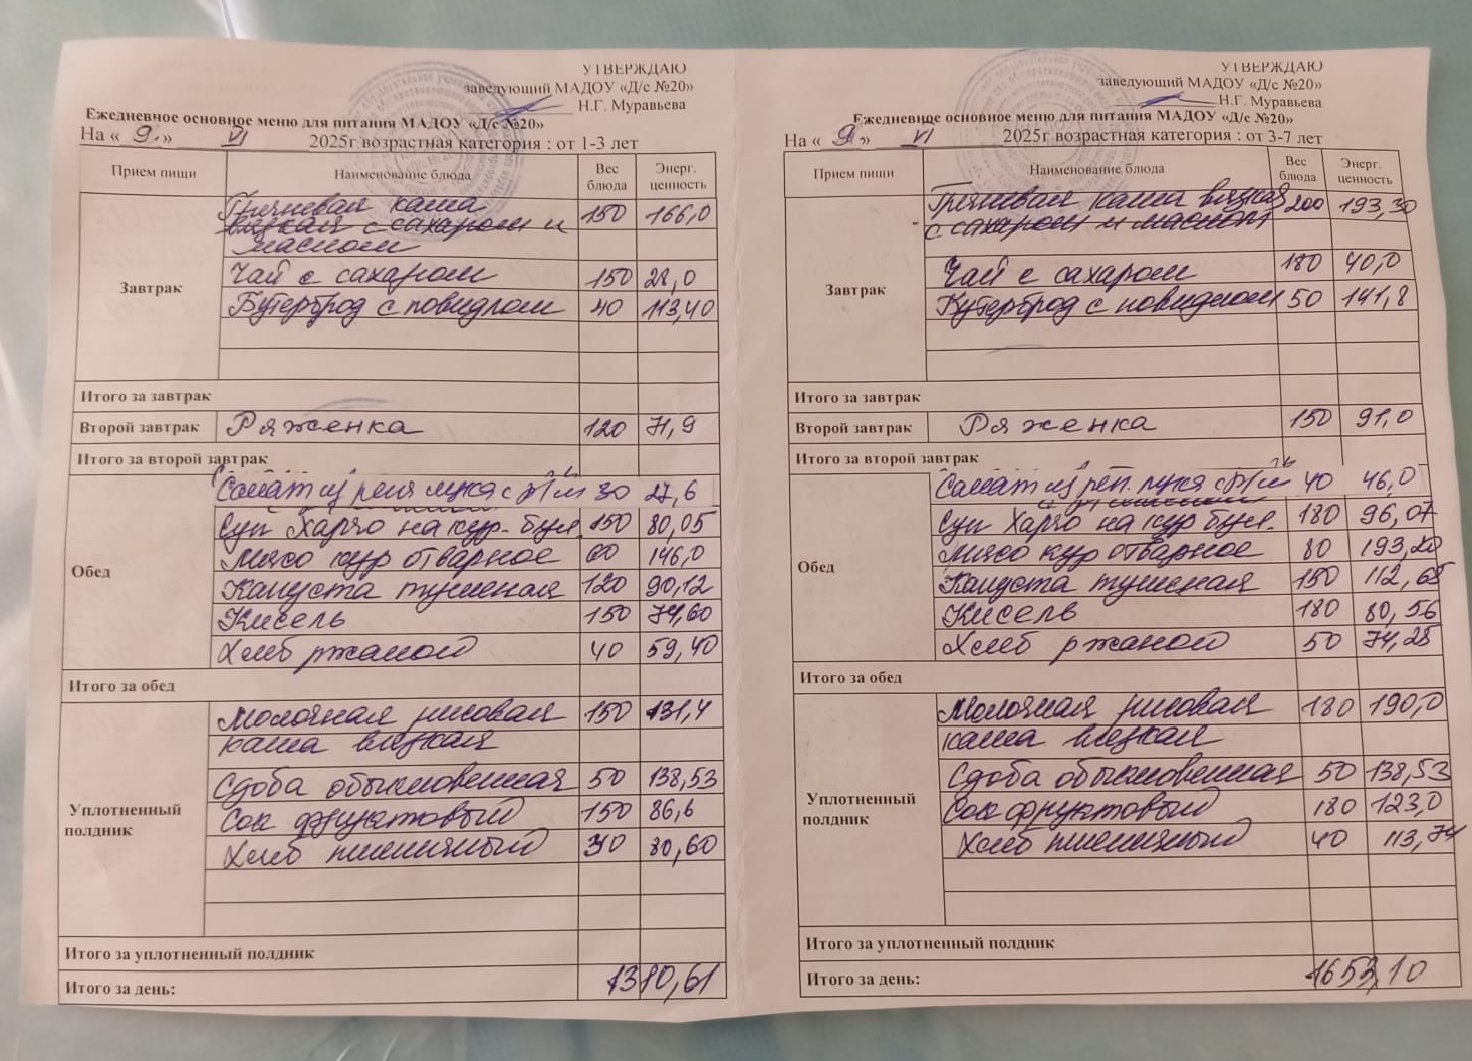 УТВЕРЖДАЮ
заведующий МАДОУ «Д/с №20»
Н.Г. Муравьева
Ежедневное основное меню для питания МАДОУ «Д/с №20»
На « 9. » VI 2025г возрастная категория : от 1-3 лет
Прием пищи Наименование блюда Вес блюда Энерг. ценность
Завтрак
Гречневая каша 150 166,0
вязкая с сахаром и
маслом
Чай с сахаром 150 28,0
Бутерброд с повидлом 40 113,40
Итого за завтрак
Второй завтрак Ряженка 120 71,9
Итого за второй завтрак
Обед
Салат из репч лука с 30 27,6
Суп Харчо на кур. бул. 150 80,05
Мясо кур отварное 60 146,0
Капуста тушеная 120 90,12
Кисель 150 74,60
Хлеб ржаной 40 59,40
Итого за обед
Уплотненный полдник
Молочная рисовая 150 131,4
каша вязкая
Сдоба обыкновенная 50 138,53
Сок фруктовый 150 86,6
Хлеб пшеничный 30 80,60
Итого за уплотненный полдник
Итого за день: 1310,61
УТВЕРЖДАЮ
заведующий МАДОУ «Д/с №20»
Н.Г. Муравьева
Ежедневное основное меню для питания МАДОУ «Д/с №20»
На « 9. » VI 2025г возрастная категория : от 3-7 лет
Прием пищи Наименование блюда Вес блюда Энерг. ценность
Завтрак
Гречневая каша вязкая 200 193,30
с сахаром и маслом
Чай с сахаром 180 40,0
Бутерброд с повидлом 50 141,8
Итого за завтрак
Второй завтрак Ряженка 150 91,0
Итого за второй завтрак
Обед
Салат из реп. лука с 40 46,0
Суп Харчо на кур бул. 180 96,07
Мясо кур отварное 80 193,20
Капуста тушеная 150 112,65
Кисель 180 80,56
Хлеб ржаной 50 74,25
Итого за обед
Уплотненный полдник
Молочная рисовая 180 190,0
каша вязкая
Сдоба обыкновенная 50 138,53
Сок фруктовый 180 123,0
Хлеб пшеничный 40 113,74
Итого за уплотненный полдник
Итого за день: 1653,10